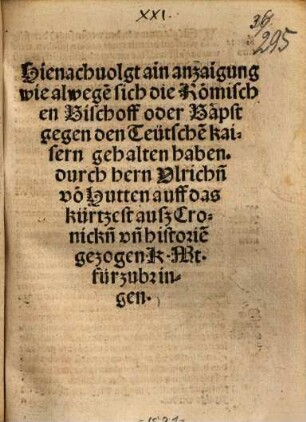 XXI.
36
295
Hienachuolgt ain anzaigung
wie alwegē sich die Römisch
en Bischoff oder Bäpst
gegen den Teütschē kai-
sern gehalten haben.
durch hern Ulrichñ
vō Hutten auff das
kürtzest ausz Cro-
nickñ vñ historiē
gezogen K. Mt.
fürzubrin-
gen.